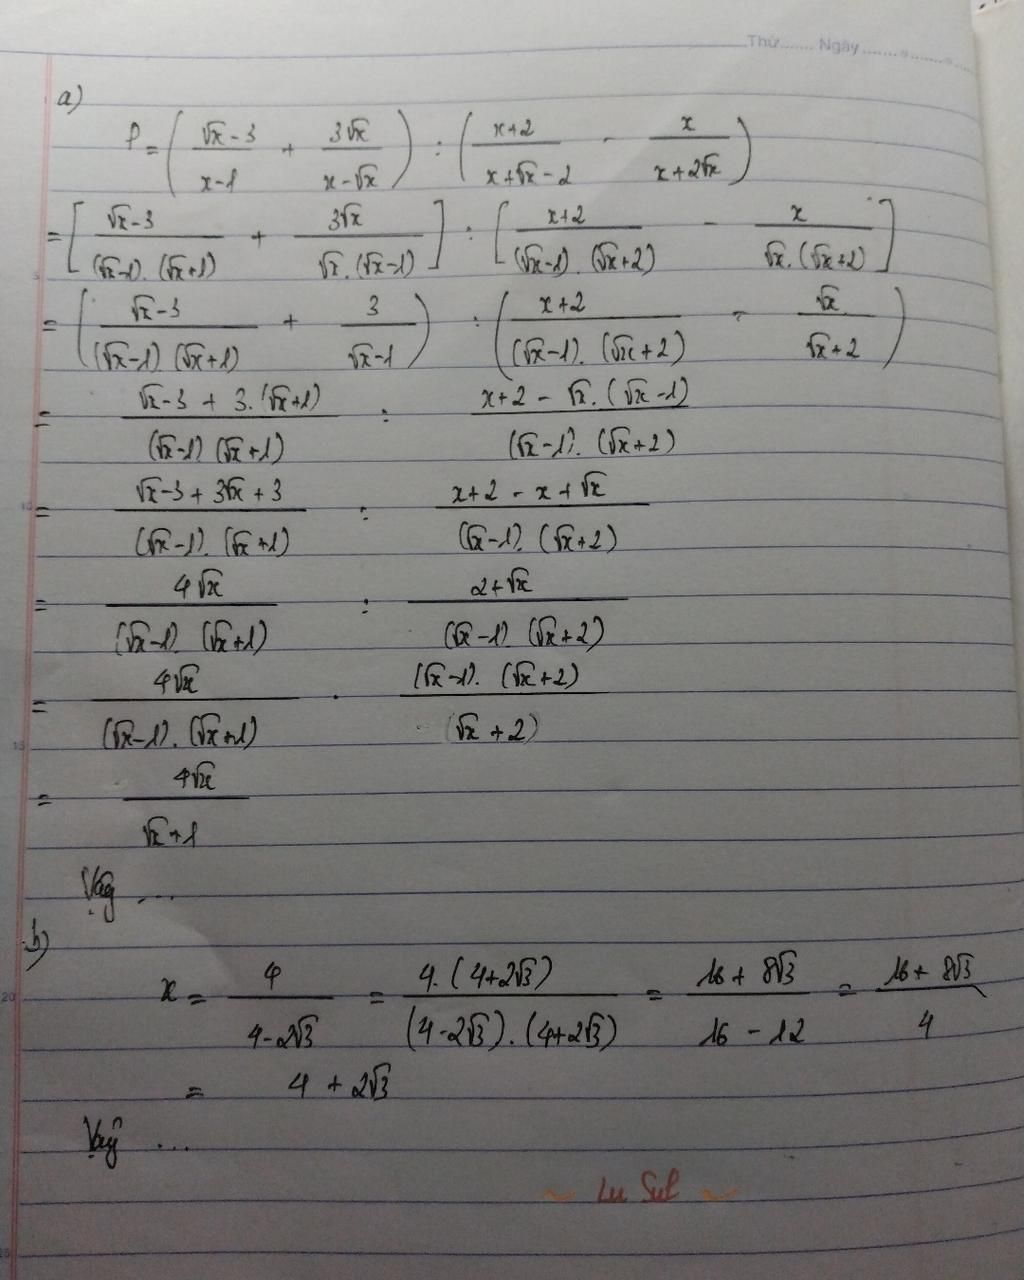 Thứ....... Ngày ...............
a)
P = ( (√x - 3)/(x - 1) + 3√x/(x - √x) ) : ( (x+2)/(x + √x - 2) - x/(x + 2√x) )
= [ (√x - 3)/((√x - 1).(√x + 1)) + 3√x/(√x.(√x - 1)) ] : [ (x+2)/((√x - 1).(√x + 2)) - x/(√x.(√x + 2)) ]
= ( (√x - 3)/((√x - 1)(√x + 1)) + 3/(√x - 1) ) : ( (x+2)/((√x - 1).(√x + 2)) - √x/(√x + 2) )
= (√x - 3 + 3.(√x + 1))/((√x - 1)(√x + 1)) : (x+2 - √x.(√x - 1))/((√x - 1).(√x + 2))
= (√x - 3 + 3√x + 3)/((√x - 1).(√x + 1)) : (x+2 - x + √x)/((√x - 1).(√x + 2))
= 4√x/((√x - 1).(√x + 1)) : (2 + √x)/((√x - 1).(√x + 2))
= 4√x/((√x - 1).(√x + 1)) . ((√x - 1).(√x + 2))/(√x + 2)
= 4√x/(√x + 1)
Vậy ...
b)
x = 4/(4 - 2√3) = 4.(4 + 2√3)/((4 - 2√3).(4 + 2√3)) = (16 + 8√3)/(16 - 12) = (16 + 8√3)/4
= 4 + 2√3
Vậy ...
~ Lu Sul ~